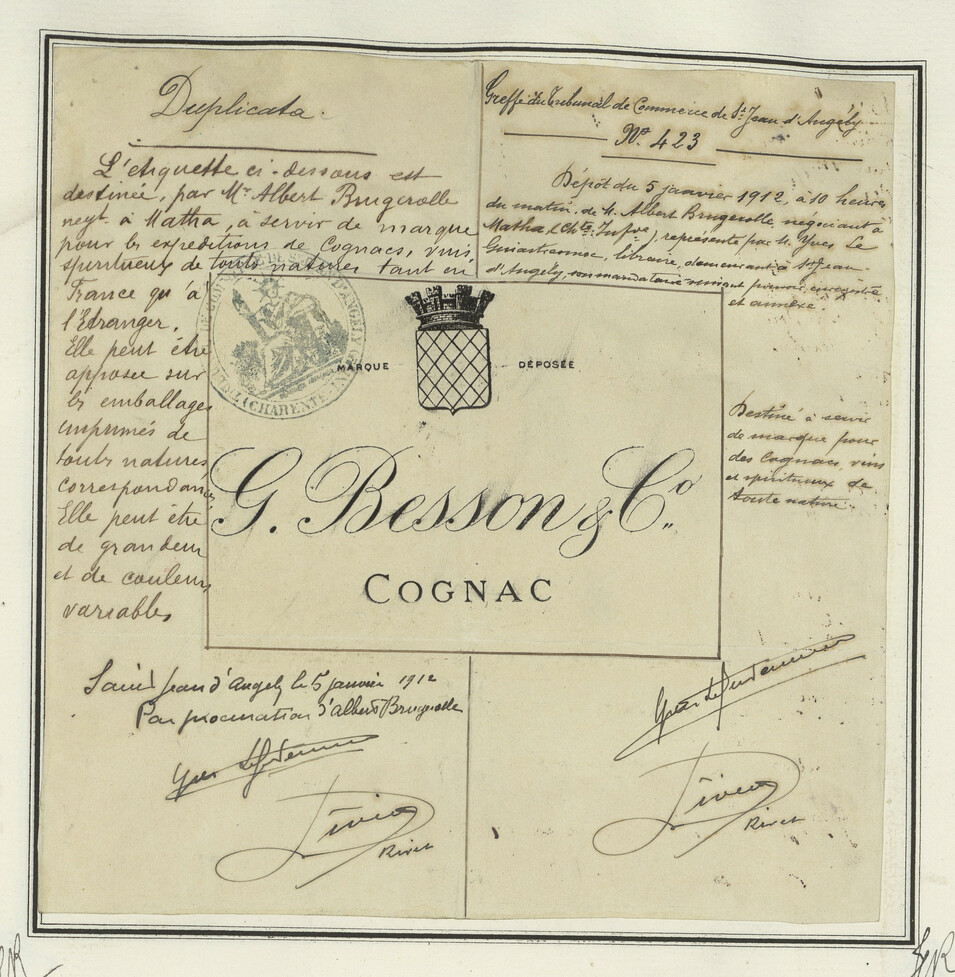 Duplicata.
L'étiquette ci-dessous est
destinée, par Mr Albert Brugerolle
negt. à Matha, à servir de marque
pour les expéditions de Cognacs, vins
spiritueux de touts natures tant en
France qu'à
l'Etranger.
Elle peut être
apposée sur
les emballages
imprimés de
touts natures
correspondances
Elle peut être
de grandeur
et de couleurs
variables
Greffe du Tribunal de Commerce de St Jean d'Angély
No. 423
Dépôt du 5 janvier 1912, à 10 heures
du matin, de M. Albert Brugerolle, négociant à
Matha (Chte Infre), représenté par M. Yves Le
libraire, demeurant à St Jean-
d'Angely, son mandataire pouvoir enregistré
et annexé.
CHARENTE
MARQUE DÉPOSÉE
G. Besson & Co.
COGNAC
Destiné à servir
de marque pour
des Cognacs, vins
et spiritueux de
toute nature.
Saint Jean d'Angely le 5 janvier 1912
Par procuration d'Albert Brugerolle
Rivet
Rivet